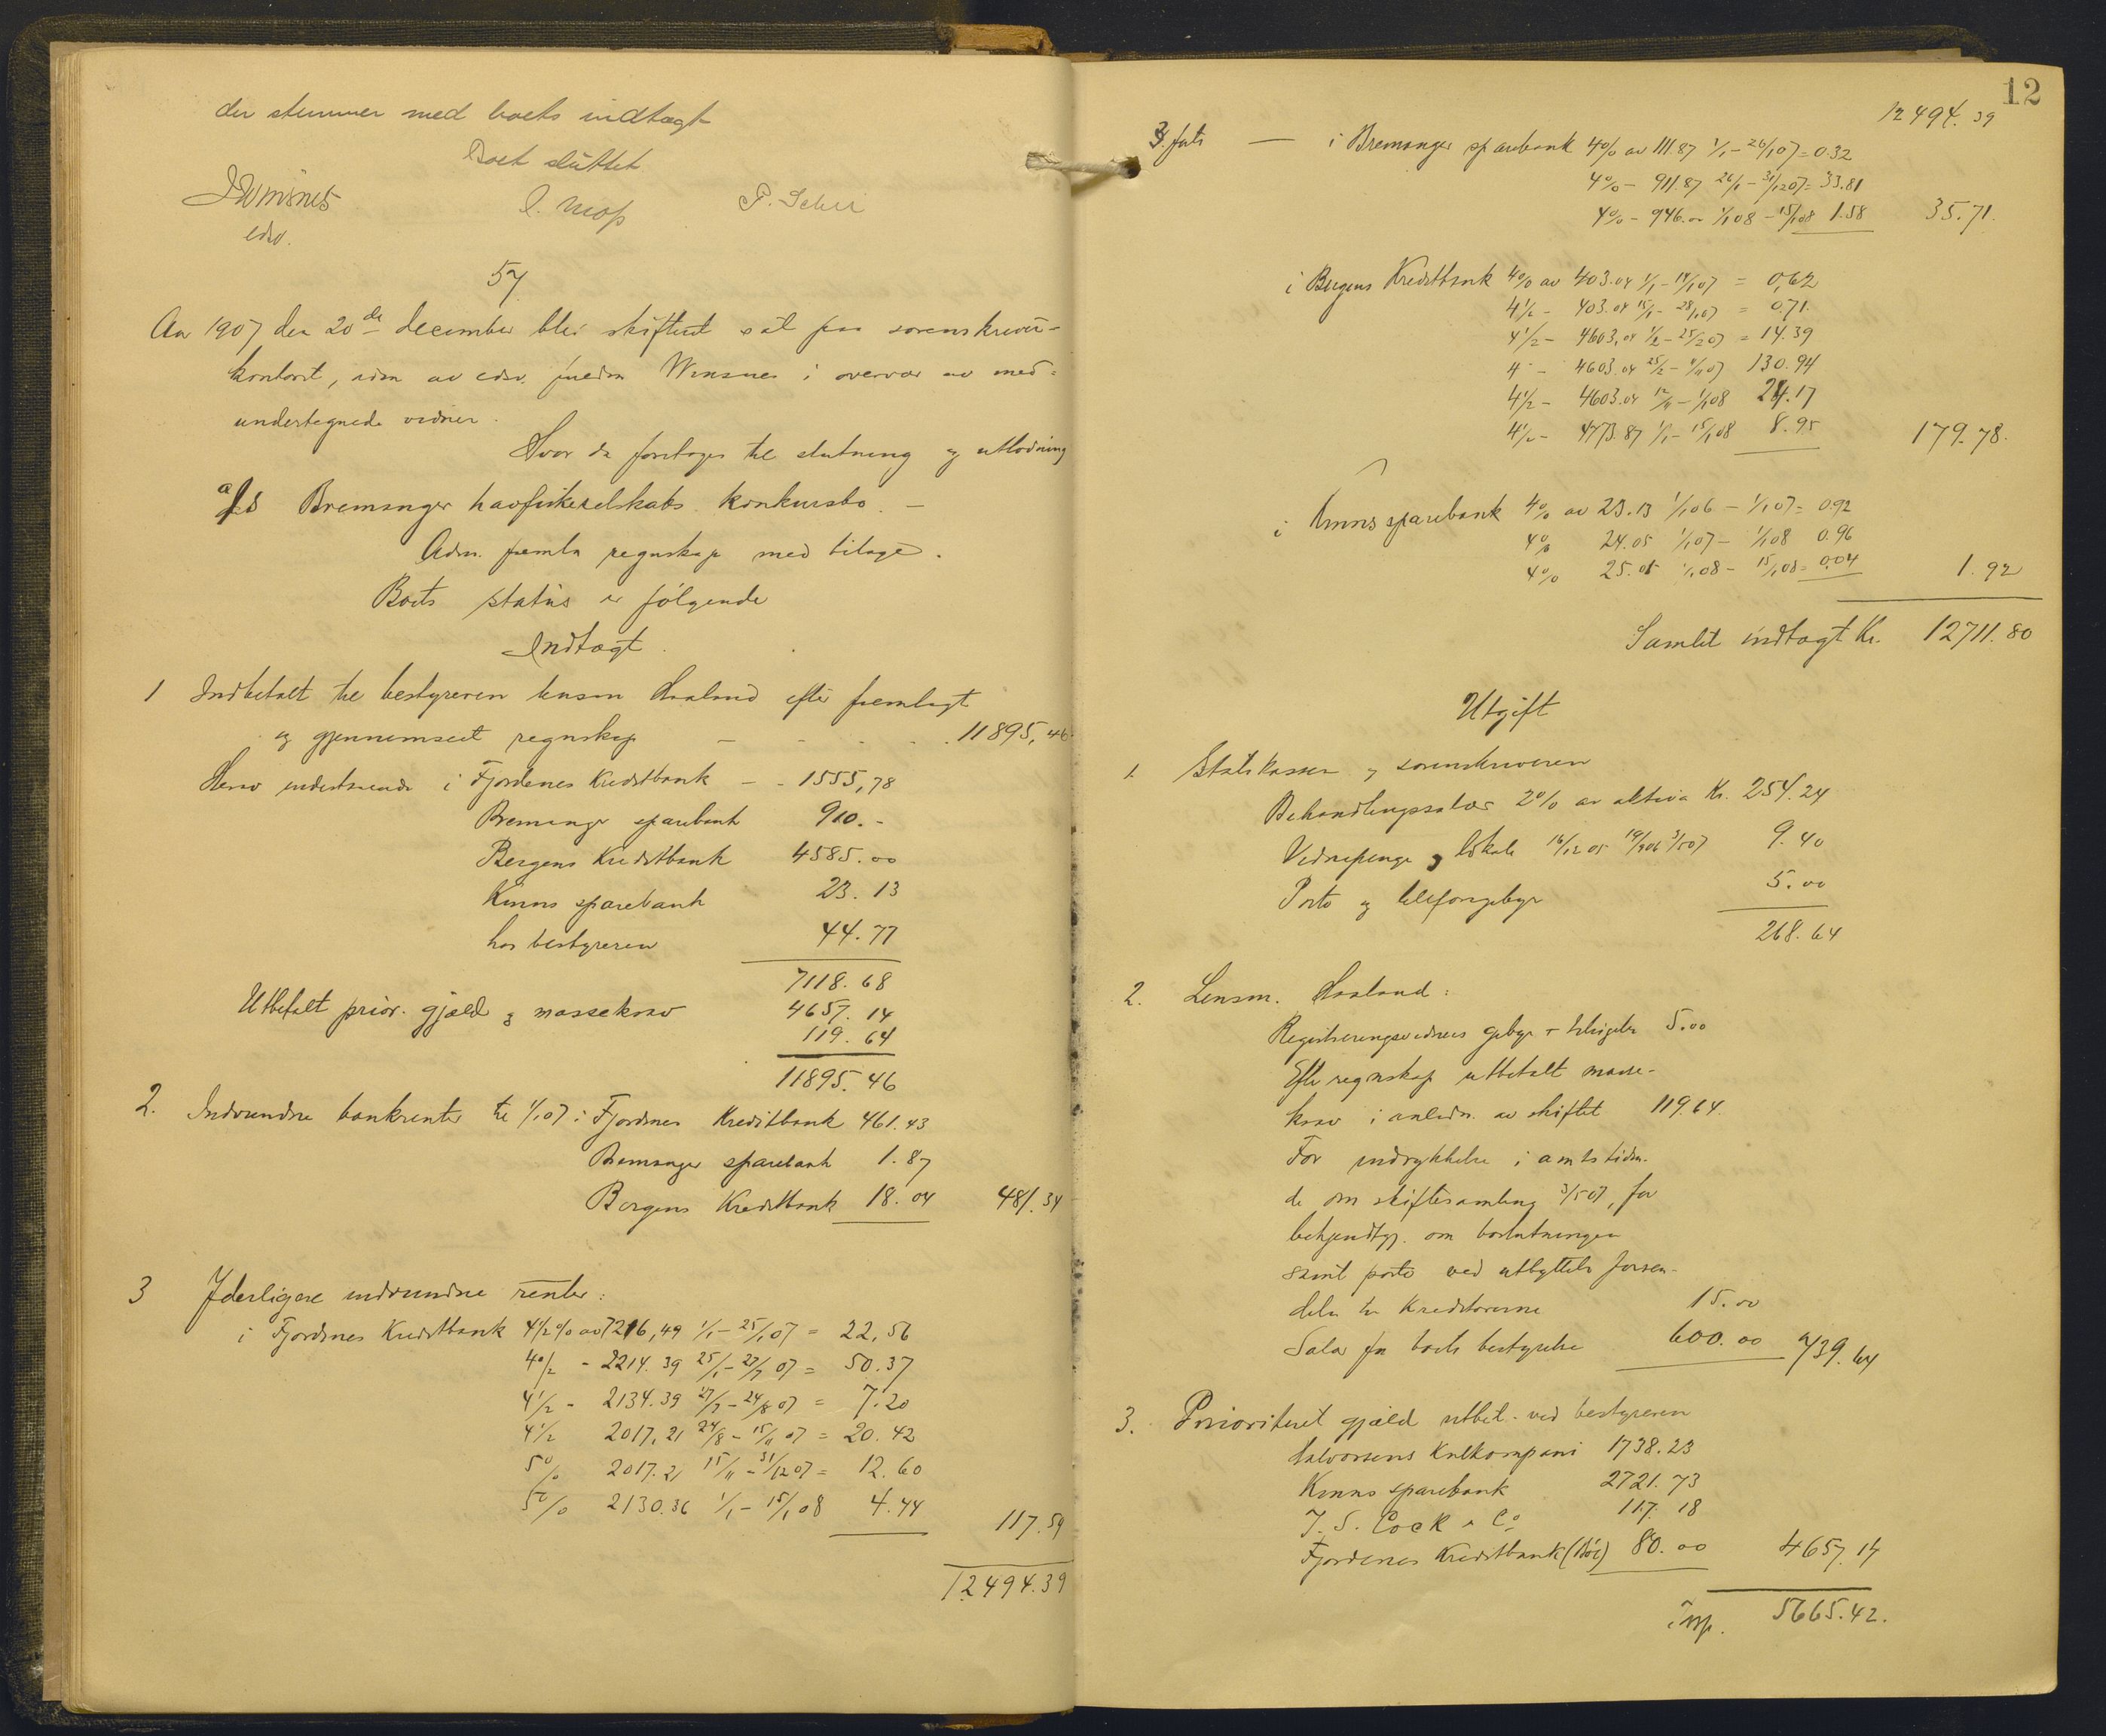 der stemmer med boets indtægt
Boet sluttet
Winsnes
edsv.
57
Aar 1907 den 20de december blev skifteret sat paa sorenskriver-
kontoret, adm av edsv. fuldm Winsnes i overvær av med-
undertegnede vidner.
Hvor da foretages til slutning og utlodning
a/s Bremanger havfiskeselskabs konkursbo. —
Adm. fremla regnskap med bilage.
Boets status er følgende
Indtægt
1 Indbetalt til bestyreren lensm Haaland efter fremlagt
og gjennemseet regnskap — 11895,46
Herav indestaaende i Fjordenes Kreditbank — 1555,78
Bremanger sparebank 910.-
Bergens Kreditbank 4585.00
Kinns sparebank 23.13
hos bestyreren 44.77
7118.68
Utbetalt prior. gjæld og massekrav 4657.14
119.64
11895.46
2. Indvundne bankrenter til 1/1 07 i Fjordenes Kreditbank 461.43
Bremanger sparebank 1.87
Bergens Kreditbank 18.04 481.34
3 Yderligere indvundne renter:
i Fjordenes Kreditbank 4½% av 7216,49 1/1 – 25/1 07 = 22,56
4½ - 2214.39 25/1 – 27/7 07 = 50.37
4½ - 2134.39 27/7 – 24/8 07 = 7.20
4½ 2017,21 24/8 – 15/11 07 = 20.42
5% 2017.21 15/11 – 31/12 07 = 12.60
5% 2130.36 1/1 – 15/1 08 4.44
117.59
12494.39
12
12494.39
3 forts — i Bremanger sparebank 4% av 111.87 1/1 – 26/1 07 = 0.32
4% – 911.87 26/1 – 31/12 07 = 33.81
4% – 946.00 1/1 08 – 15/1 08 1.58 35.71.
i Bergens Kreditbank 4% av 403.04 1/1 – 14/1 07 = 0,62
4½ – 403.04 15/1 – 28/1 07 = 0.71.
4½ – 4603,04 1/2 – 25/2 07 = 14.39
4 – 4603.04 25/2 – 07 130.94
4½ – 4603.04 12/11 – 1/1 08 24.17
4½ – 4773.87 1/1 – 15/1 08 8.95 179.78.
i Kinns sparebank 4% av 23.13 1/1 06 – 1/1 07 = 0.92
4% 24.05 1/1 07 – 1/1 08 0.96
4% 25.01 1/1 08 – 15/1 08 = 0.04 1.92
Samlet indtægt Kr. 12711.80
Utgift
1. Statskassen v sorenskriveren
Behandlingssalær 2% av aktiva Kr. 254.24
Vidnepenge og lokale 16/12 05 19/9 06 3/5 07 9.40
Porto og telefongebyr 5.00
268.64
2. Lensm. Haaland:
Registreringsvidners gebyr 5.00
Efter regnskap utbetalt masse-
krav i anledn. av skiftet 119.64.
For indrykkelse i amtstiden-
de om skiftesamling 3/5 07, for
bekjendtgj. om boslutningen
samt porto ved utbyttets forsen-
delse til kreditorerne 15.00
Salær for boets bestyrelse 600.00 739.64
3. Prioriteret gjæld utbet. ved bestyreren
Halvorsens Kulkompani 1738.23
Kinns sparebank 2721.73
J. S. Cock & Co 117.18
Fjordenes Kreditbank 80.00 4657.14
Trsp. 5665.42.